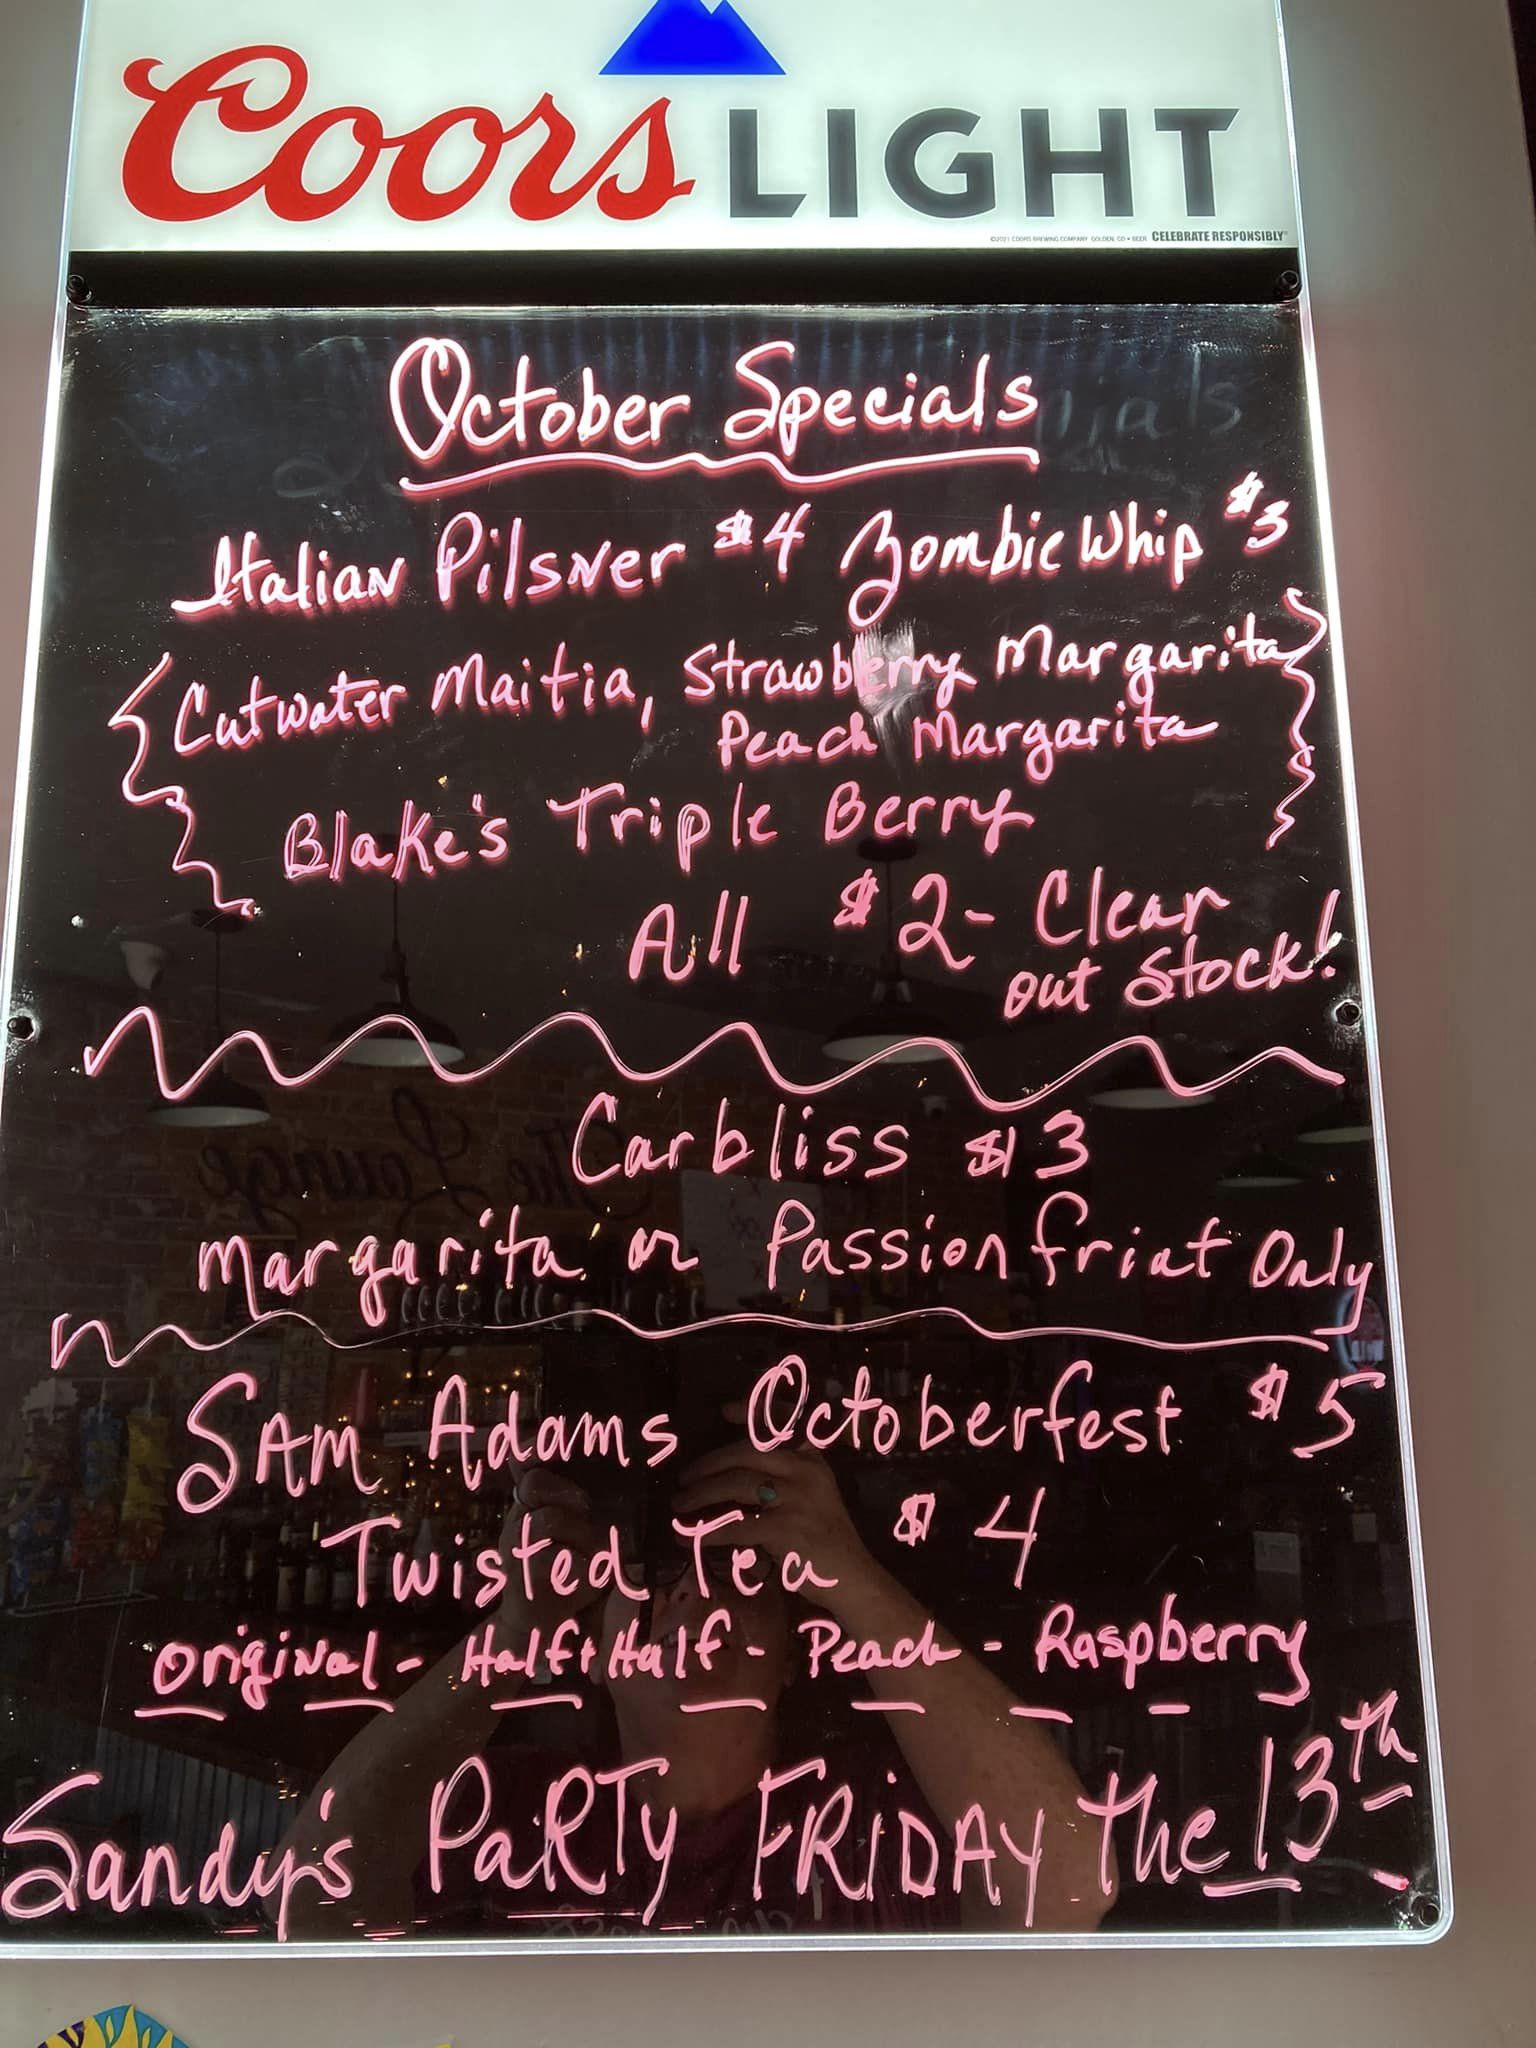 Coors LIGHT
©2021 COORS BREWING COMPANY GOLDEN, CO • BEER CELEBRATE RESPONSIBLY
October Specials
Italian Pilsner $4 Zombie Whip $3
Cutwater Maitia, Strawberry Margarita
Peach Margarita
Blake's Triple Berry
All $2- Clear
out Stock!
The Lounge
Carbliss $3
Margarita or Passionfriut Only
SAM Adams Octoberfest $5
Twisted Tea $4
Original - Half + Half - Peach - Raspberry
Sandy's PaRTy FRiDAY the 13th